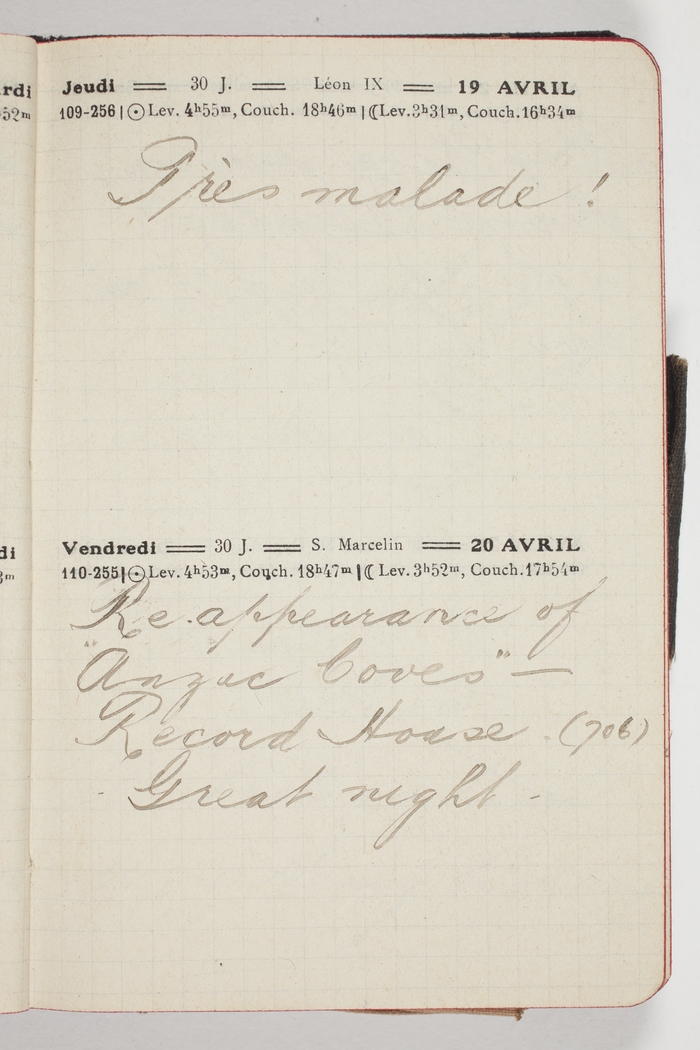 rdi
52m
Jeudi == 30 J. == Léon IX == 19 AVRIL
109-256 | ☉ Lev. 4h55m, Couch. 18h46m | ☾ Lev. 3h31m, Couch. 16h34m
Très malade !
di
3m
Vendredi == 30 J. == S. Marcelin == 20 AVRIL
110-255 | ☉ Lev. 4h53m, Couch. 18h47m | ☾ Lev. 3h52m, Couch. 17h54m
Re.appearance of
"Anzac Coves" —
Record House. (706)
- Great night -